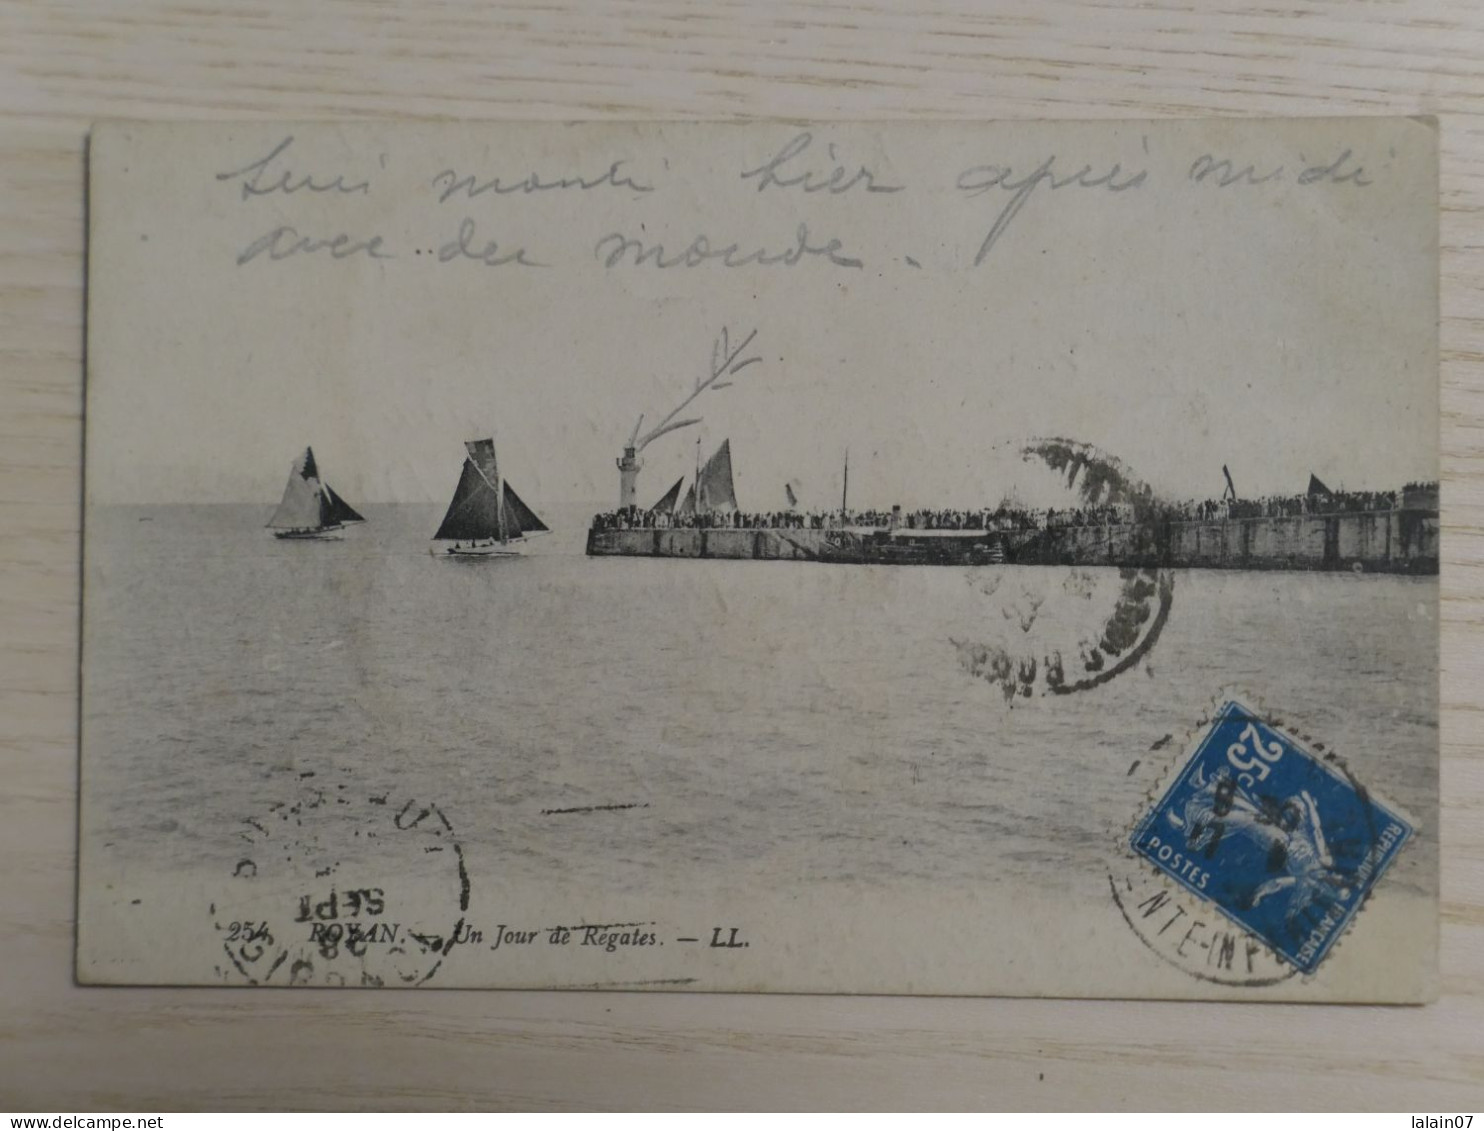 Suis monté hier après midi
avec du monde.
25c
POSTES
SEPT
28
254 ROYAN. — Un Jour de Régates. — LL.
delcampe.net
lalain07